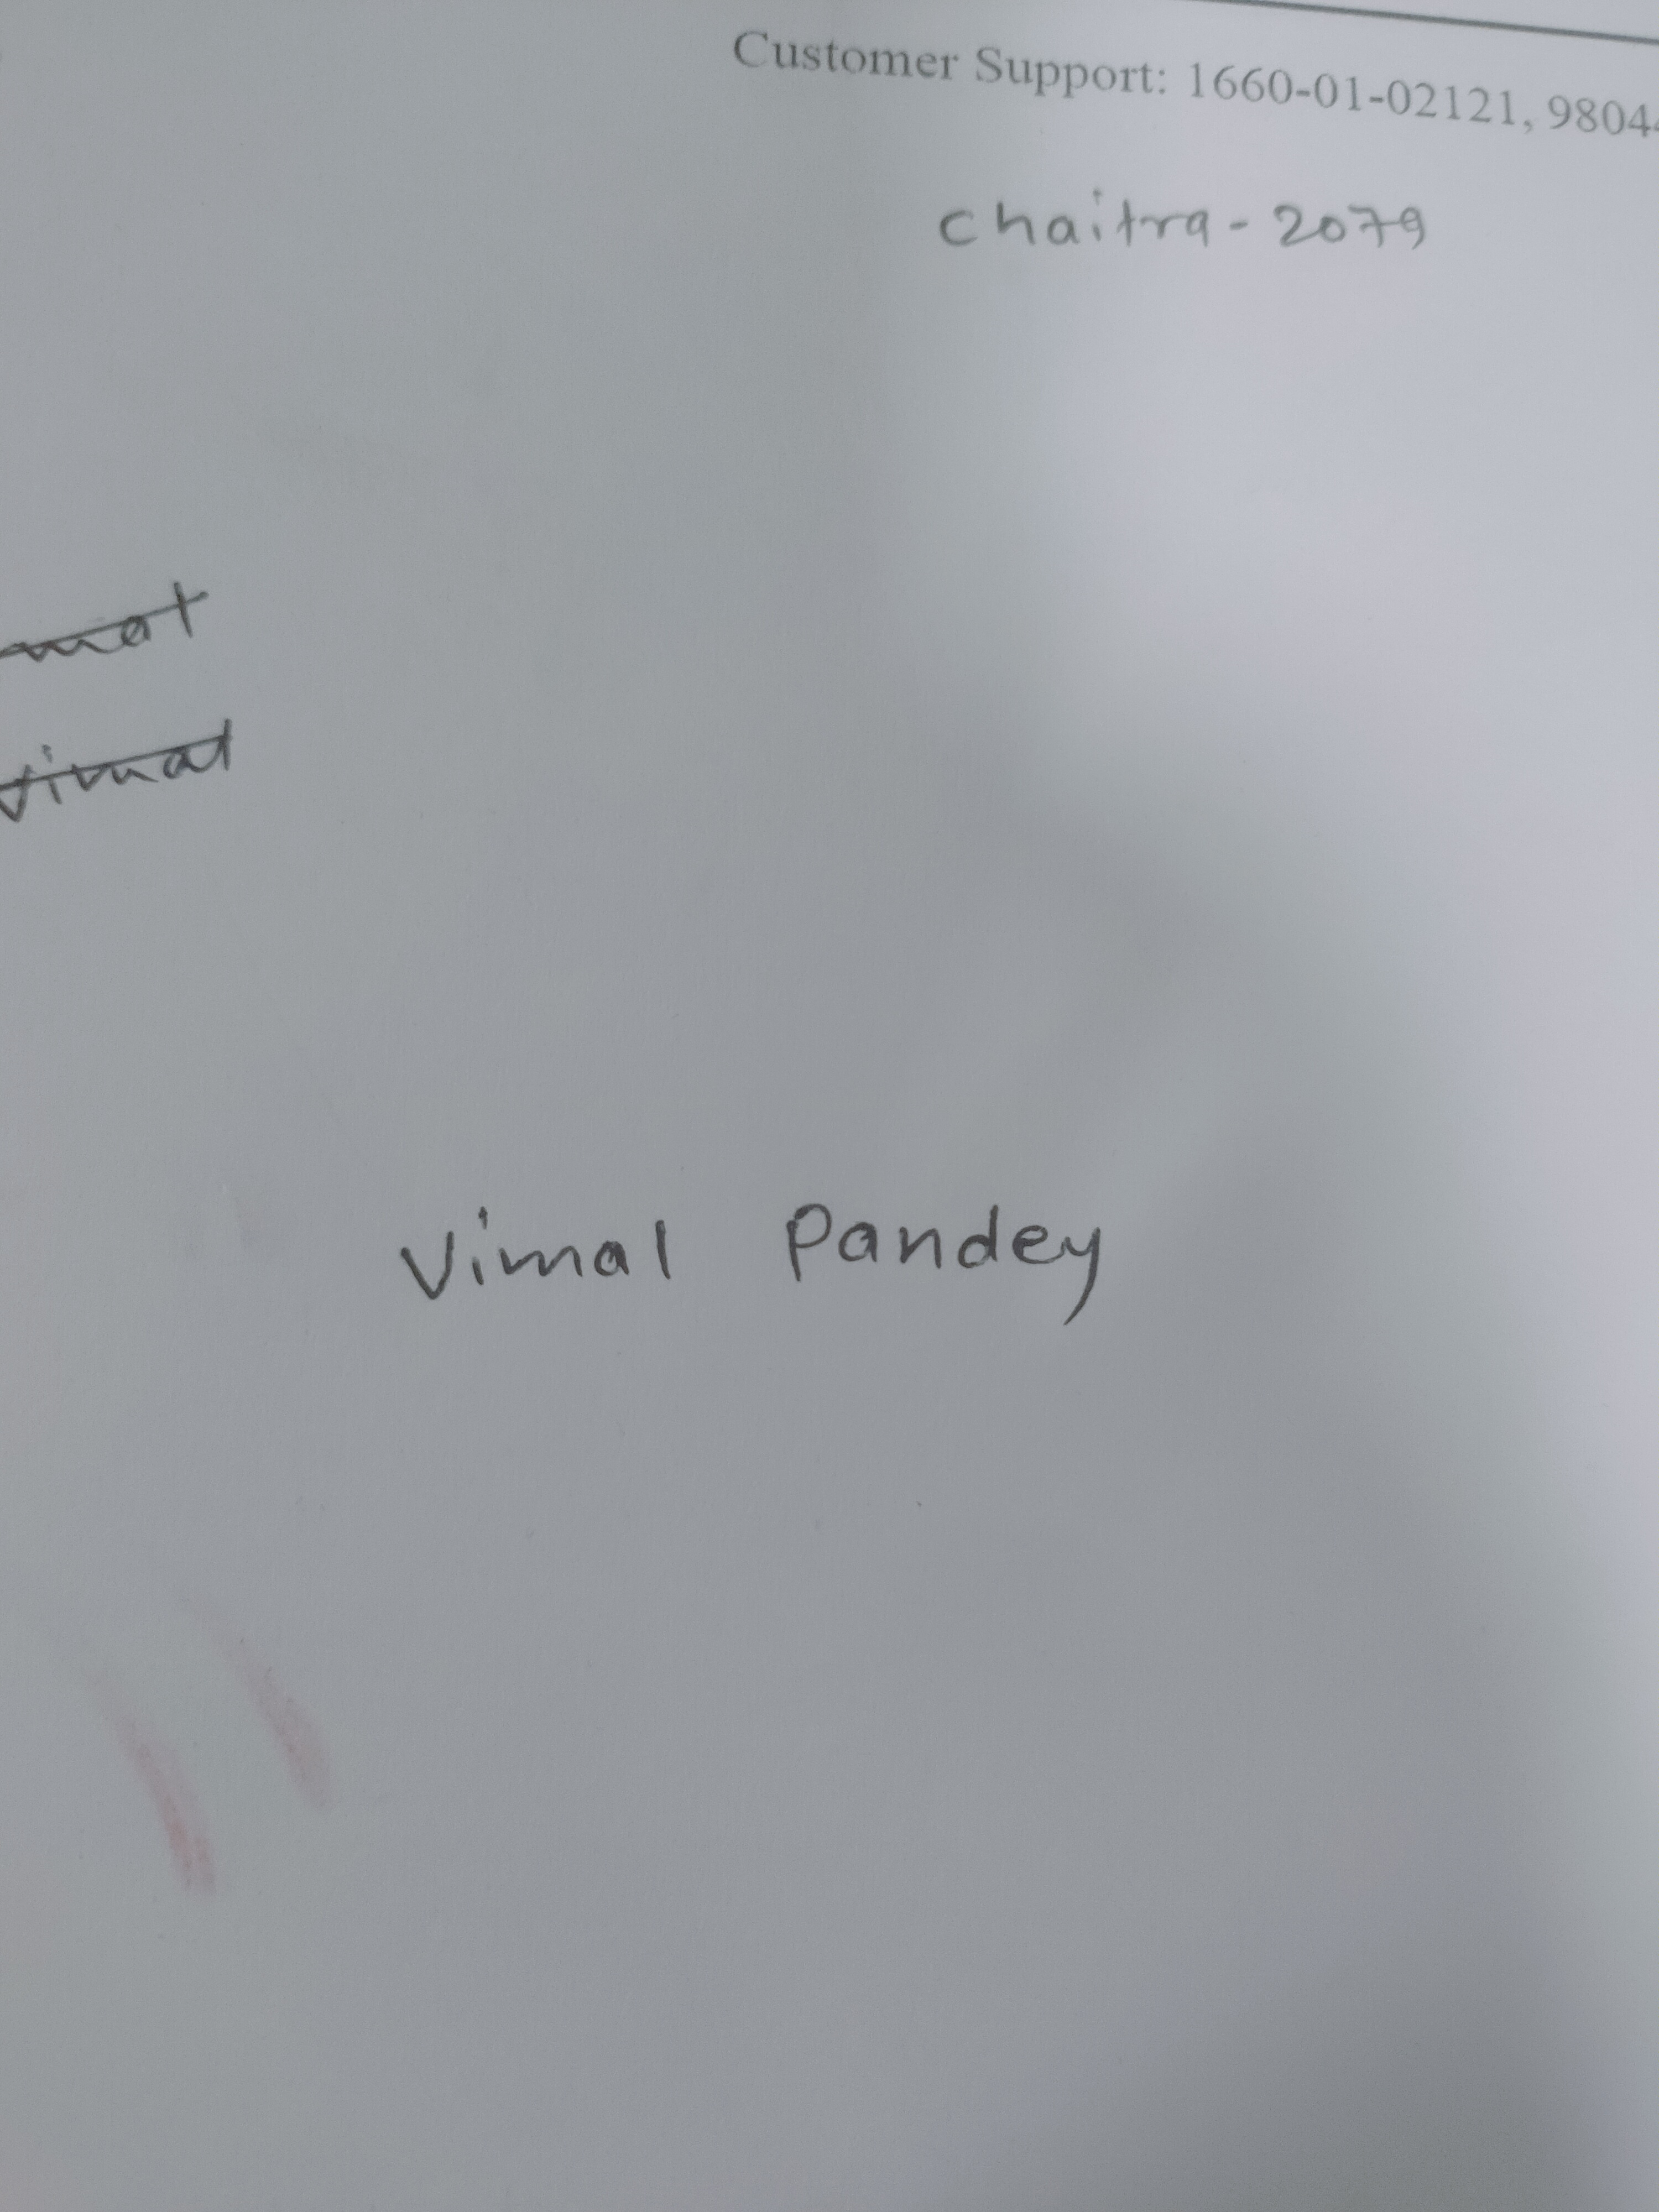 Customer Support: 1660-01-02121, 9804
chaitra - 2079
vimal
Vimal Pandey